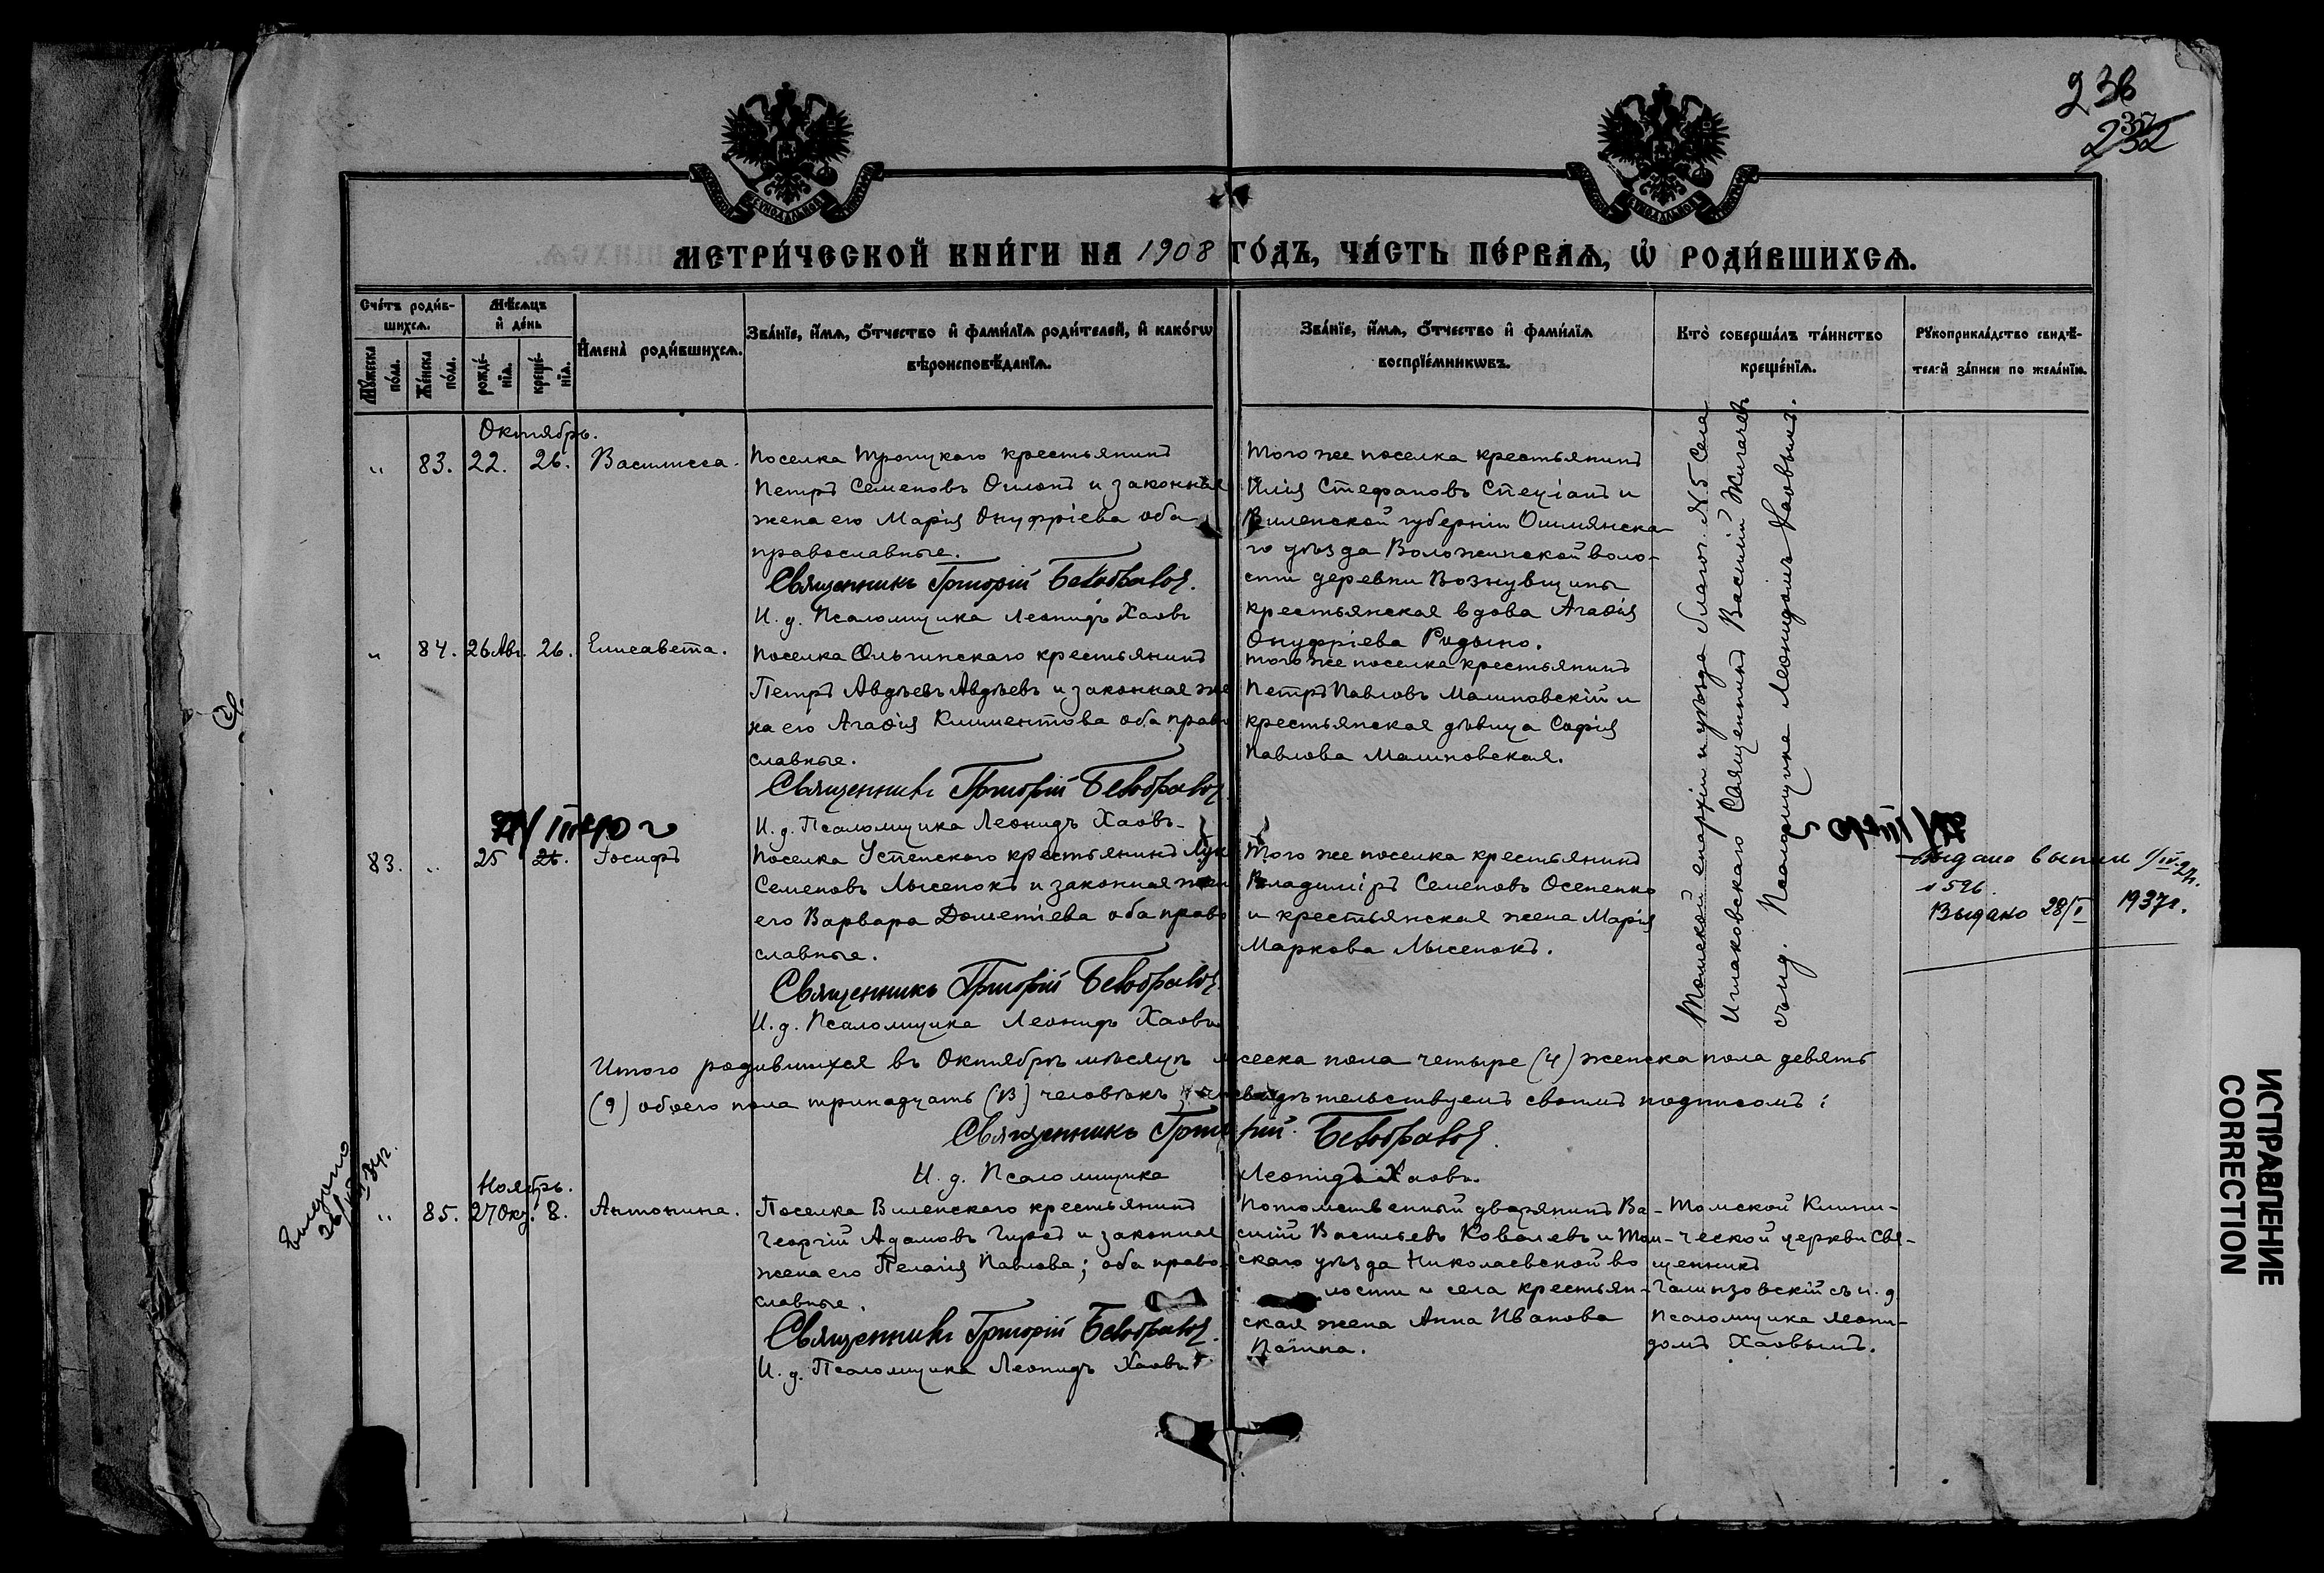 236
232
37
МЕТРИ́ЧЕСКОЙ КНИ́ГИ НА 1908 ГО́ДЪ, ЧА́СТЬ ПЕ́РВАѦ, Ѡ҆ РОДИ́ВШИХСѦ.
Сче́тъ роди́в-
шихсѧ.
Мꙋ́жеска по́ла.
Же́нска по́ла.
Мѣ́сѧцъ
и҆ де́нь
рожде́-
нїѧ.
креще́-
нїѧ.
И҆мена̀ роди́вшихсѧ.
Зва́нїе, и҆́мѧ, ѻ҆́тчество и҆ фами́лїѧ роди́телей, и҆ како́гѡ
вѣроисповѣ́данїѧ.
Зва́нїе, и҆́мѧ, ѻ҆́тчество и҆ фами́лїѧ
воспрїе́мникѡвъ.
Кто̀ соверша́лъ та́инство
креще́нїѧ.
Рꙋкоприкла́дство свидѣ́-
телей за́писи по жела́нїю.
Октябрь.
" 83. 22. 26. Василисса.
Поселка Троицкаго крестьянинъ
Петръ Семеновъ и законная
жена его Марія Онуфріева оба
православные.
Священникъ Григорій
И. д. Псаломщика Леонидъ Хаовъ
Того же поселка крестьянинъ
Илія Стефановъ и
Виленской губерніи Ошмянска-
го уѣзда Воложинской воло-
сти деревни
крестьянская вдова Агаѳія
Онуфріева
" 84. 26 Авг. 26. Елисавета.
Поселка Ольгинскаго крестьянинъ
Петръ Авдѣевъ Авдѣевъ и законная же
на его Агаѳія Климентова оба право
славные.
Священникъ Григорій
И. д. Псаломщика Леонидъ Хаовъ.
Того же поселка крестьянинъ
Петръ Павловъ Малиновскій и
крестьянская дѣвица Софія
Павлова Малиновская.
83. " 25 26. Іосифъ
Поселка Успенскаго крестьянинъ
Семеновъ Лысенокъ и законная жена
его Варвара Дометіева оба право
славные.
Священникъ Григорій
И. д. Псаломщика Леонидъ Хаовъ
Того же поселка крестьянинъ
Владиміръ Семеновъ Осененко
и крестьянская жена Марія
Маркова Лысенокъ.
Томской епархіи и уѣзда благоч. №5 села
Священникъ Василій
съ и. д. Псаломщика Леонидомъ Хаовымъ.
Выдана выпис 1/IV-27г.
№ 596.
Выдано 28/I 1937г.
Итого родившихся въ Октябрѣ мѣсяцѣ мужеска пола четыре (4) женска пола девять
(9) обоего пола тринадцать (13) человѣкъ, свидѣтельствуемъ своимъ подписомъ:
Священникъ Григорій
И. д. Псаломщика Леонидъ Хаовъ.
Выдано
Ноябрь.
" 85. 27 Окт. 8. Антонина.
Поселка Виленскаго крестьянинъ
Георгій Адамовъ и законная
жена его Пелагія Павлова; оба право-
славные.
Священникъ Григорій
И. д. Псаломщика Леонидъ Хаовъ
Потомственный дворянинъ Ва-
силій Васильевъ Ковалевъ и Том-
скаго уѣзда Николаевской во
лости и села крестьян-
ская жена Анна Иванова
Томской Клини-
ческой церкви Свя-
щенникъ
съ и. д.
Псаломщика Леони-
домъ Хаовымъ.
ИСПРАВЛЕНИЕ
CORRECTION